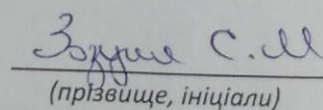 Зозуля С.М
(прізвище, ініціали)